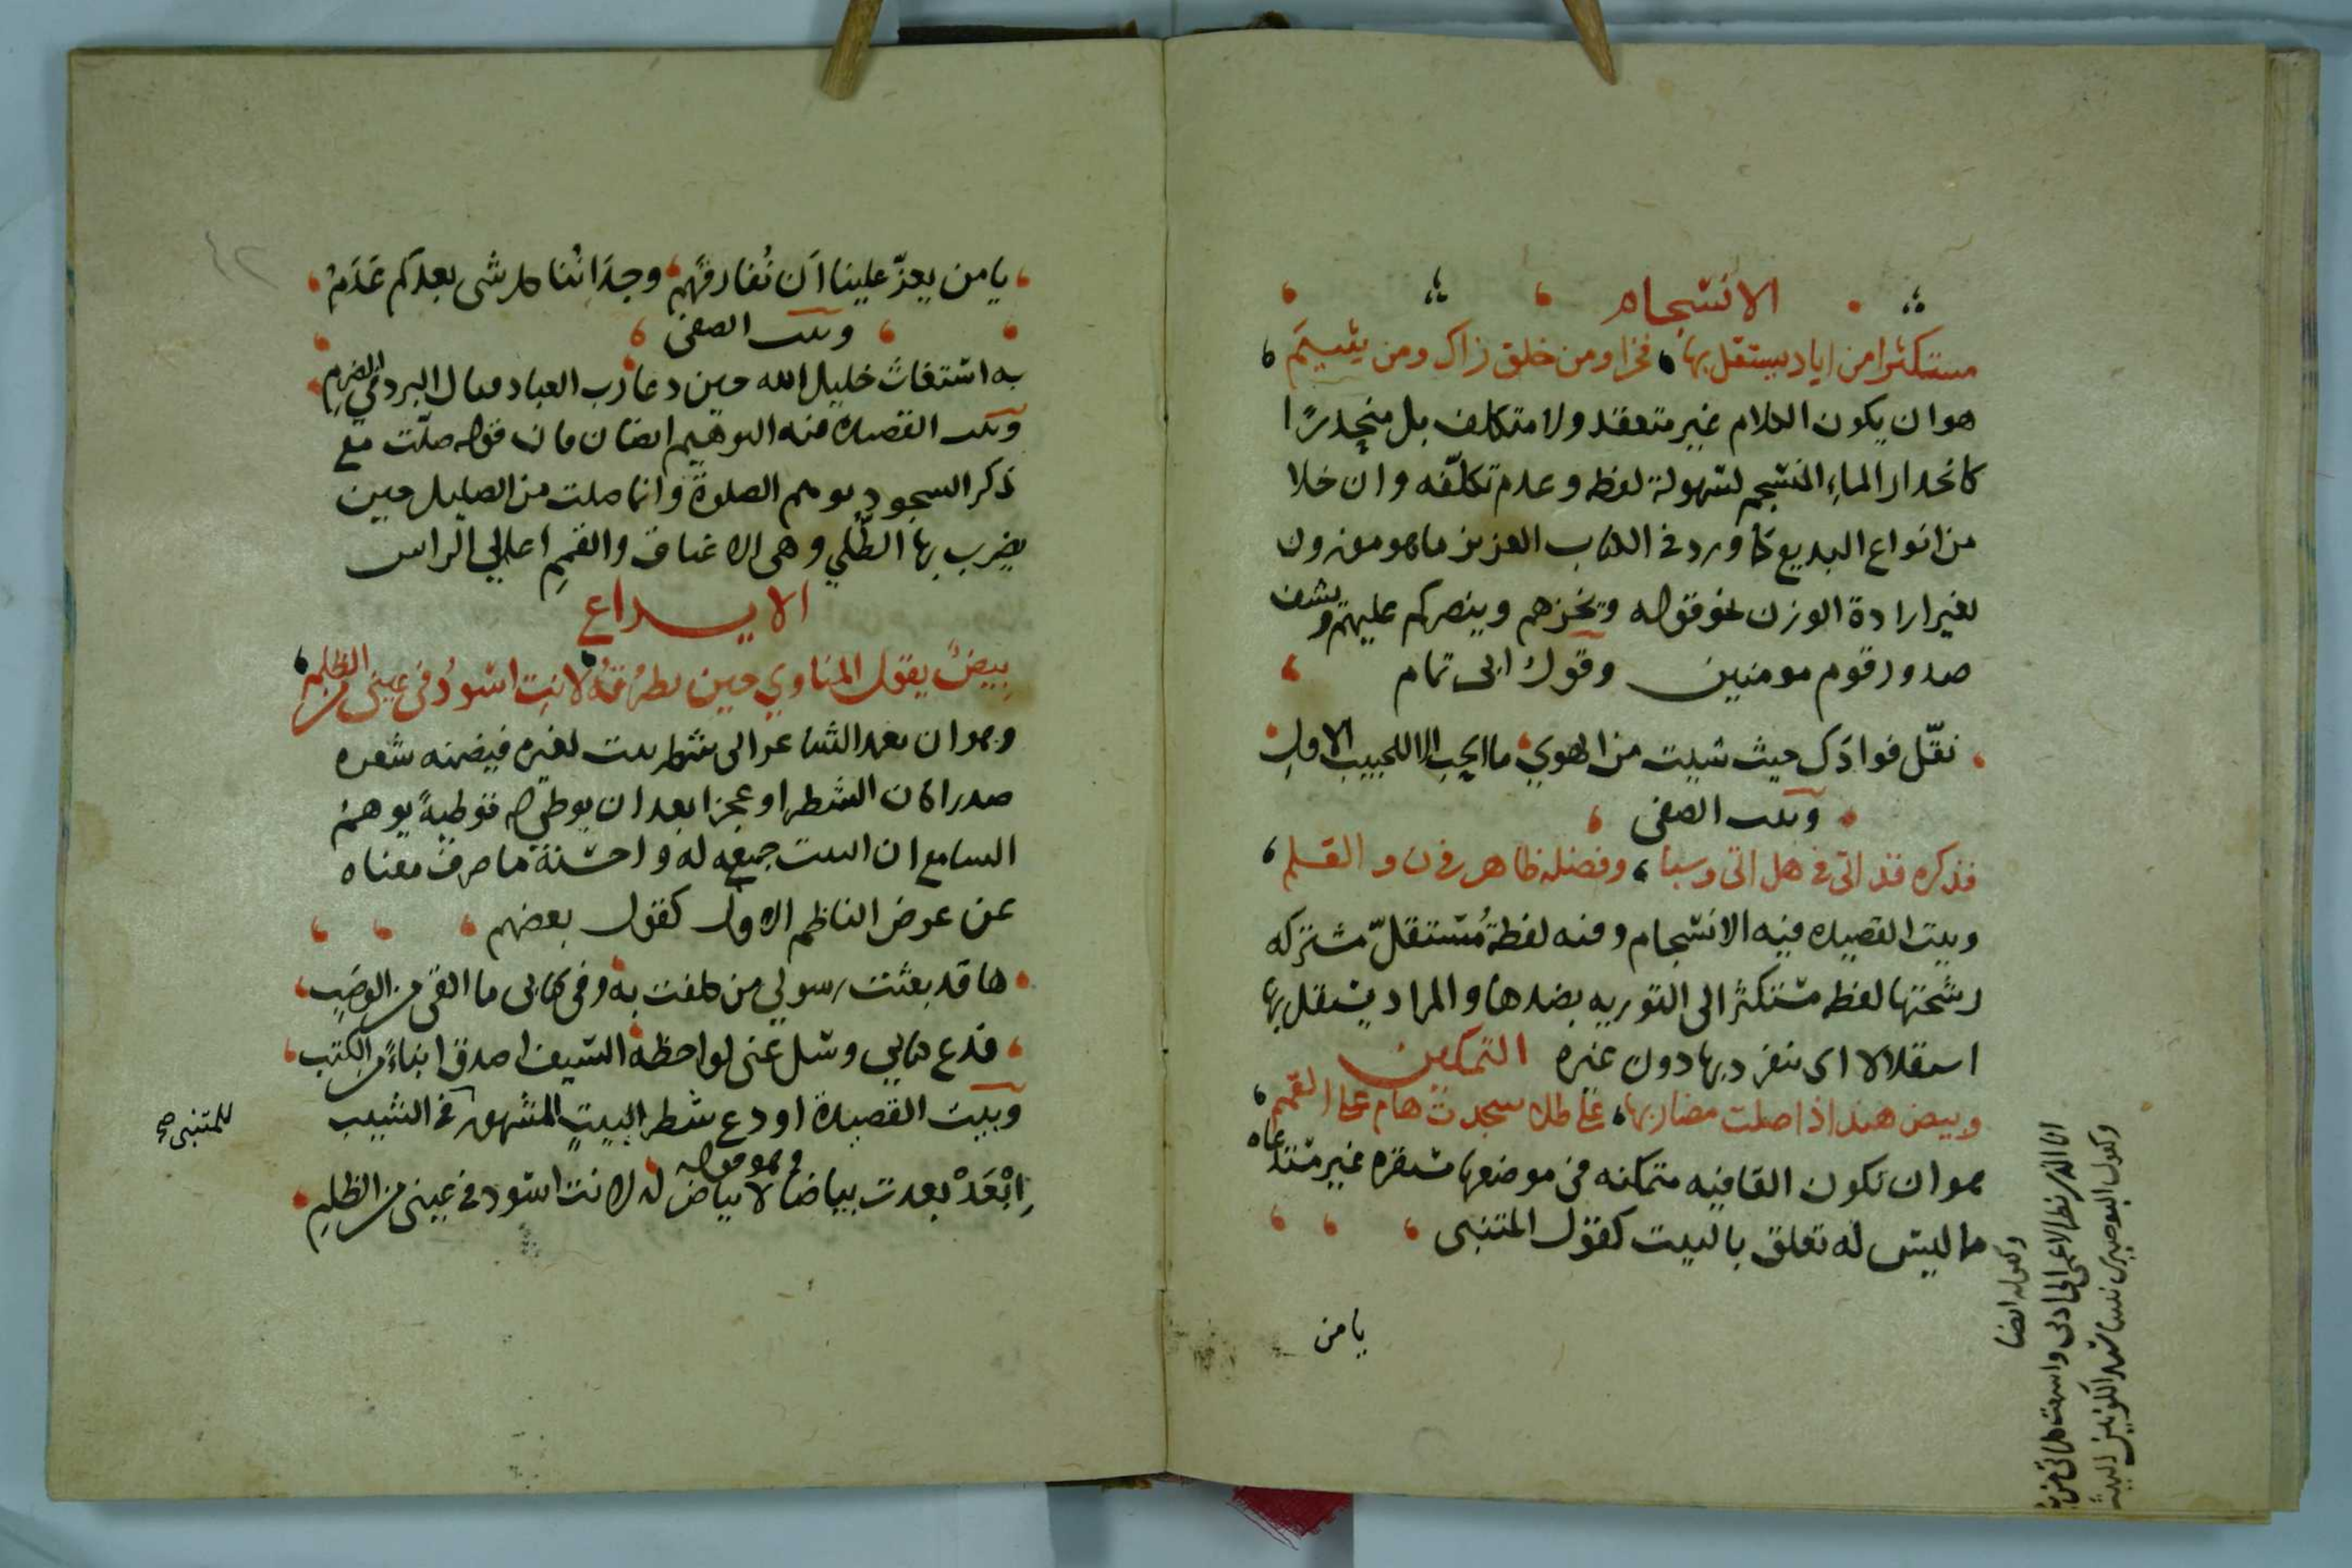 الانسجام
مستكثرا من اياد يستقل بها فخرا ومن خلق زاك ومن يشم
هو ان يكون الكلام غير متعقد ولا متكلف بل منحدرًا
كانحدار الماء المنسجم لسهولة لفظه وعدم تكلّفه وان خلا
من انواع البديع كما ورد في الكتاب العزيز ما هو موزون
لغير ارادة الوزن نحو قوله ويخزهم وينصركم عليهم ويشف
صدور قوم مومنين وقول ابى تمام
نقّل فوادك حيث شيت من الهوي ما الحب الا للحبيب الاول
وبيت الصفى
فذكره قد اتى في هل اتى وسبا وفضله ظاهر في ن والقلم
وبيت القصيده فيه الانسجام وفيه لفظة مُستقلّ مشتركه
رشحتها لفظه مستكثرا الى التوريه بضدها والمراد يستقل بها
استقلالا اى ينفرد بها دون غيره التمكين
وبيض هند اذا صلت مضاربها على طلا سجدت هام على القمم
هو ان تكون القافيه متمكنه فى موضعها مستقره غير مستدعاه
ما ليس له تعلق بالبيت كقول المتنبى
يا من
وكقوله ايضا
انا الذى نظر الاعمى الى ادبى واسمعت كلماتى من به
وكقول البوصيرى محمد سيد الكونين البيت
يا من يعزّ علينا اَن نُفارقهم وجداننا كل شى بعدكم عَدَمُ
وبيت الصفى
به استغاث خليل الله حين دعا رب العباد فنال البرد فى الضرم
وبيت القصيده فيه التوهيم ايضا فان قوله صلّت مع
ذكر السجود يوهم الصلوة وانما صلت من الصليل حين
يضرب بها الطُلي وهى الاعناق والقمم اعالي الراس
الايداع
بِيضٌ يقول المناوي حين تطرُقهُ لانت اسودُ في عينى من الظلم
وهو ان يعمد الشاعر الى شطر بيت لغيره فيضمنه شعره
صدرا كان الشطر او عجزا بعد ان يوطي له توطيةً يوهم
السامع ان البيت جميعه له واحسنه ما صرف معناه
عن عرض الناظم الاول كقول بعضهم
ها قد بعثت رسولي من كلفت به وفي كتابى ما القى من الوصب
فدع كتابي وسل عنى لواحظه السيف اصدق انباءً من الكتب
وبيت القصيدة اودع شطر البيت المشهور فى الشيب
للمتنبى صح
وهو قوله
اِبْعَدْ بعدت بياضا لا بياض له لانت اسود في عينى من الظلم